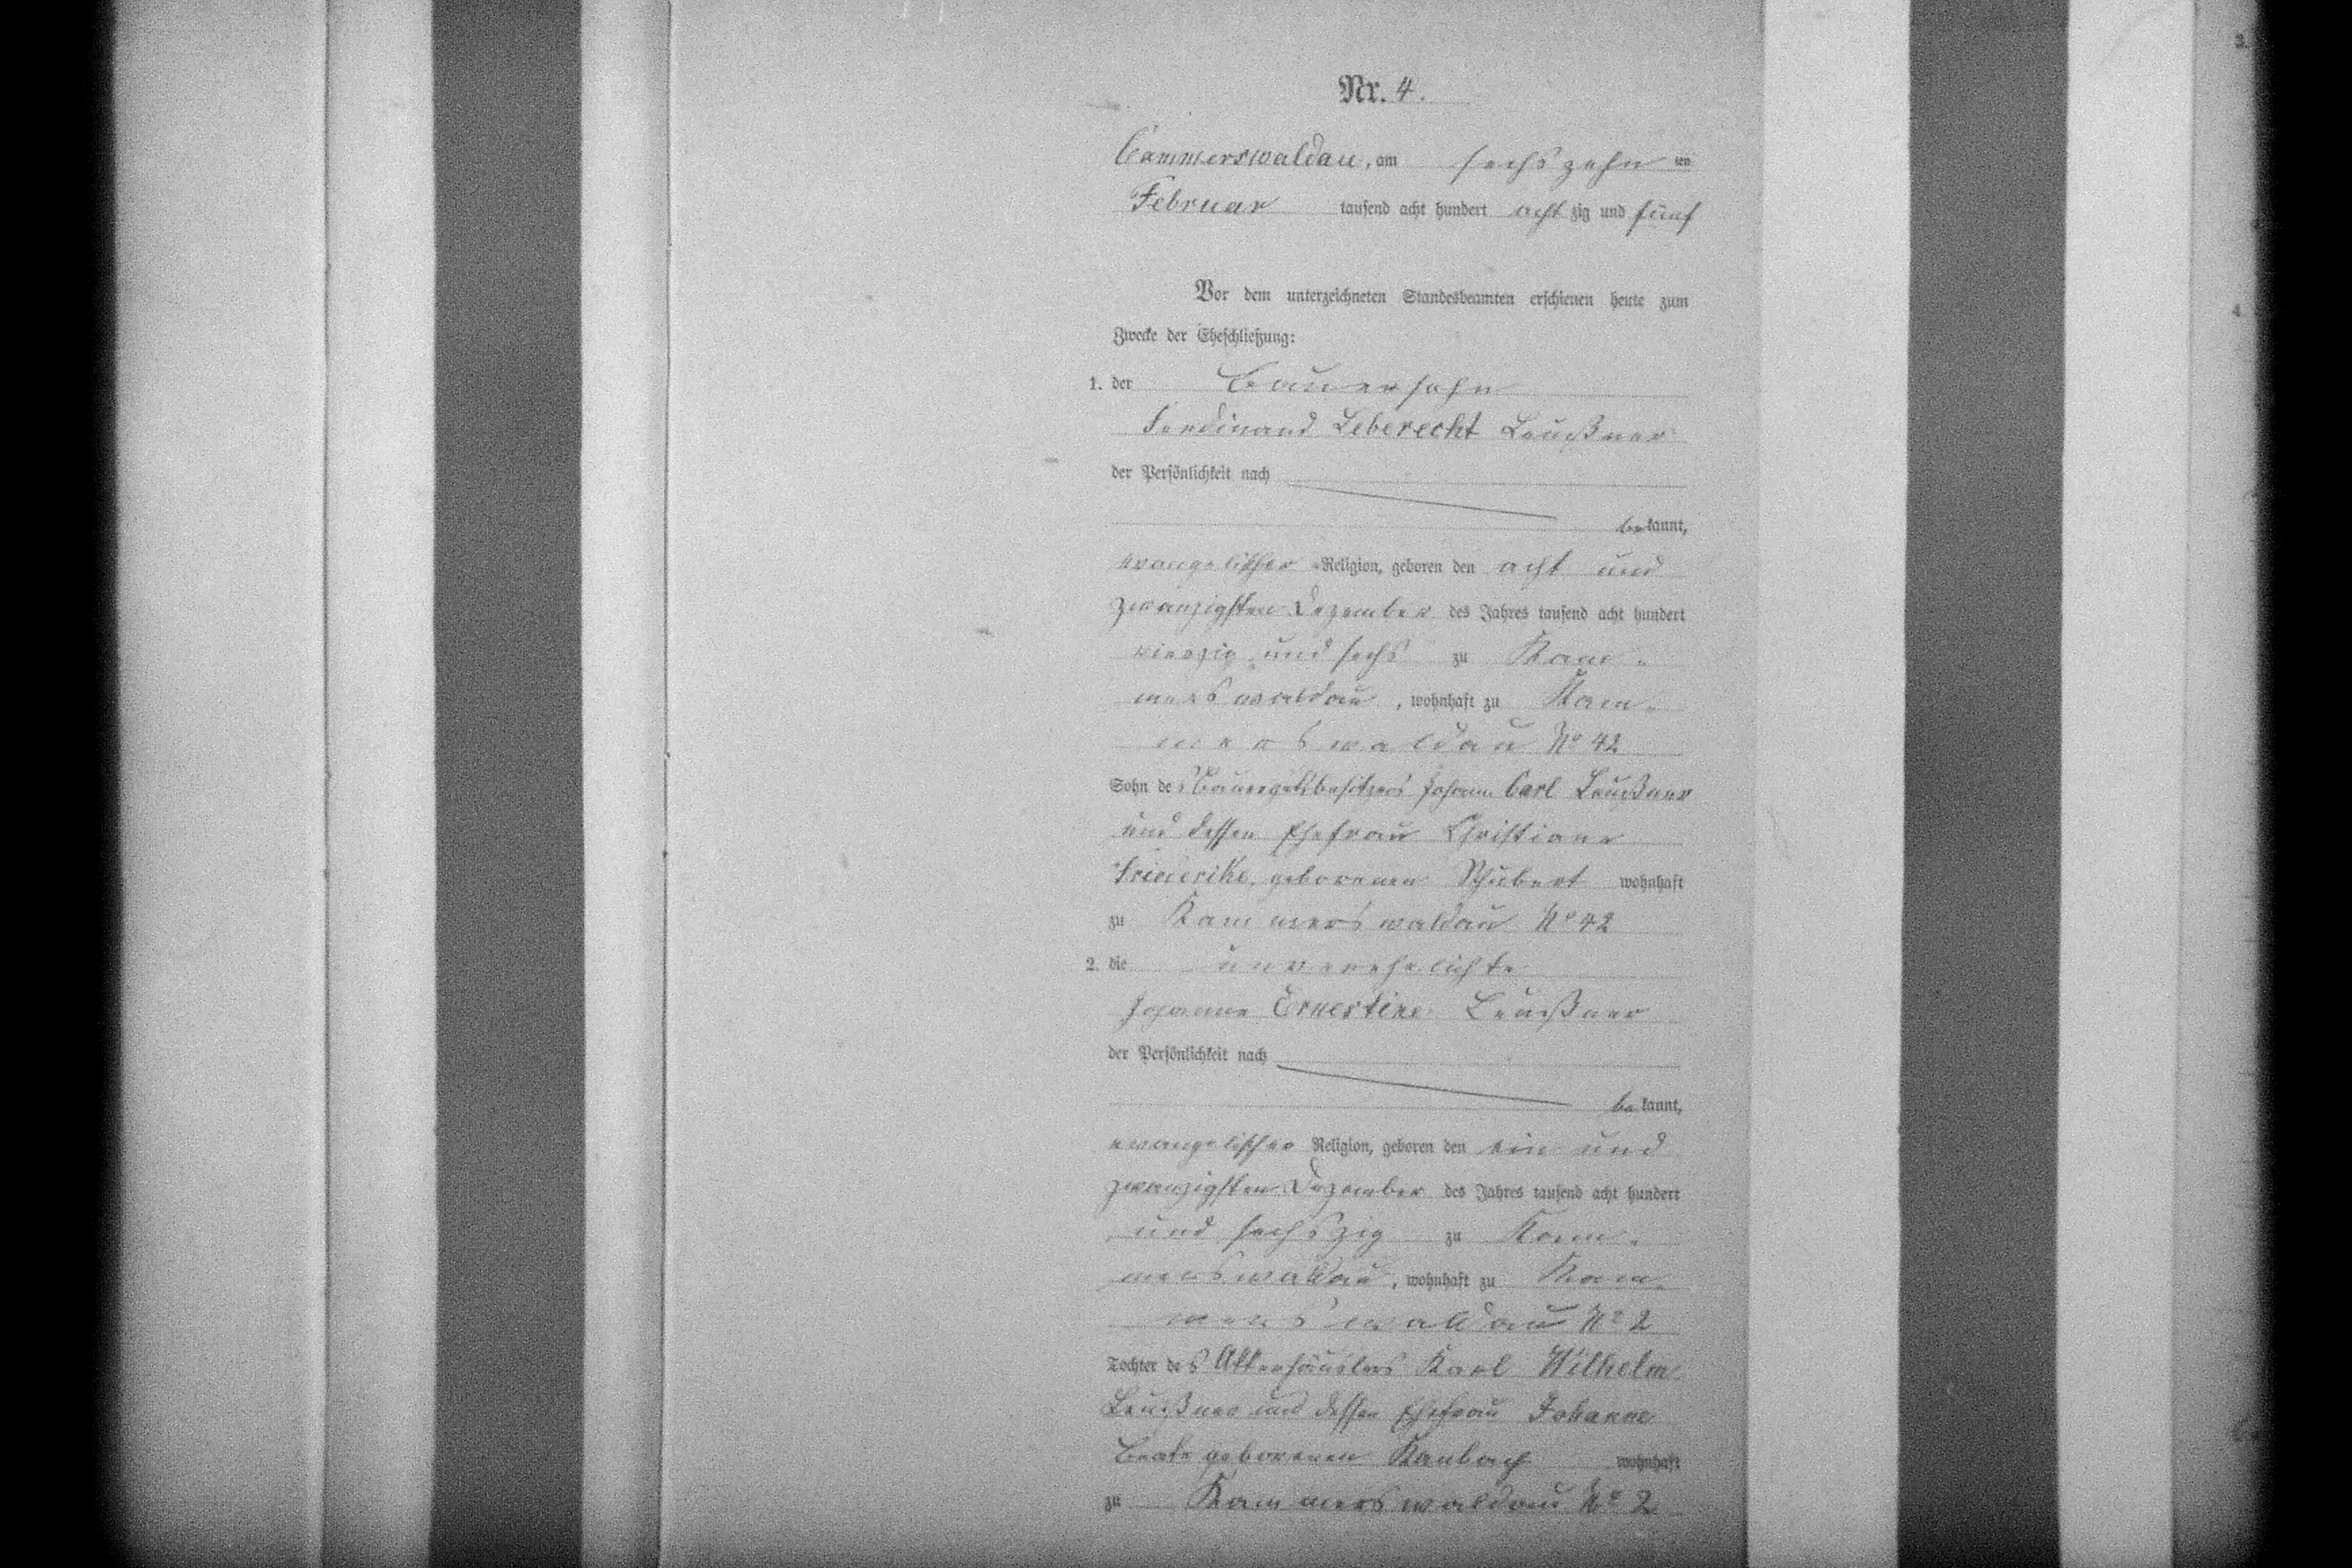 Nr. 4.
Cammerswaldau, am sechszehn ten
Februar tausend acht hundert acht zig und fünf
Vor dem unterzeichneten Standesbeamten erschienen heute zum
Zwecke der Eheschließung:
1. der Bauersohn
Ferdinand Leberecht Leußner
der Persönlichkeit nach
be kannt,
evangelischer Religion, geboren den acht und
zwanzigsten Dezember des Jahres tausend acht hundert
vierzig und sechs zu Kam-
merswaldau, wohnhaft zu Kam-
merswaldau No 42
Sohn des Bauergutsbesitzers Johann Carl Leußner
und dessen Ehefrau Christiane
Friederike, geborenen Schubert wohnhaft
zu Kammerswaldau No 42
2. die unverehelichte
Johanne Ernestine Leußner
der Persönlichkeit nach
be kannt,
evangelischer Religion, geboren den ein und
zwanzigsten Dezember des Jahres tausend acht hundert
und sechszig zu Kam-
merswaldau, wohnhaft zu Kam-
merswaldau No 2
Tochter des Ackerhäuslers Karl Wilhelm
Leußner und dessen Ehefrau Johanne
Beate geborenen Kanbach wohnhaft
zu Kammerswaldau No 2
3.
4.